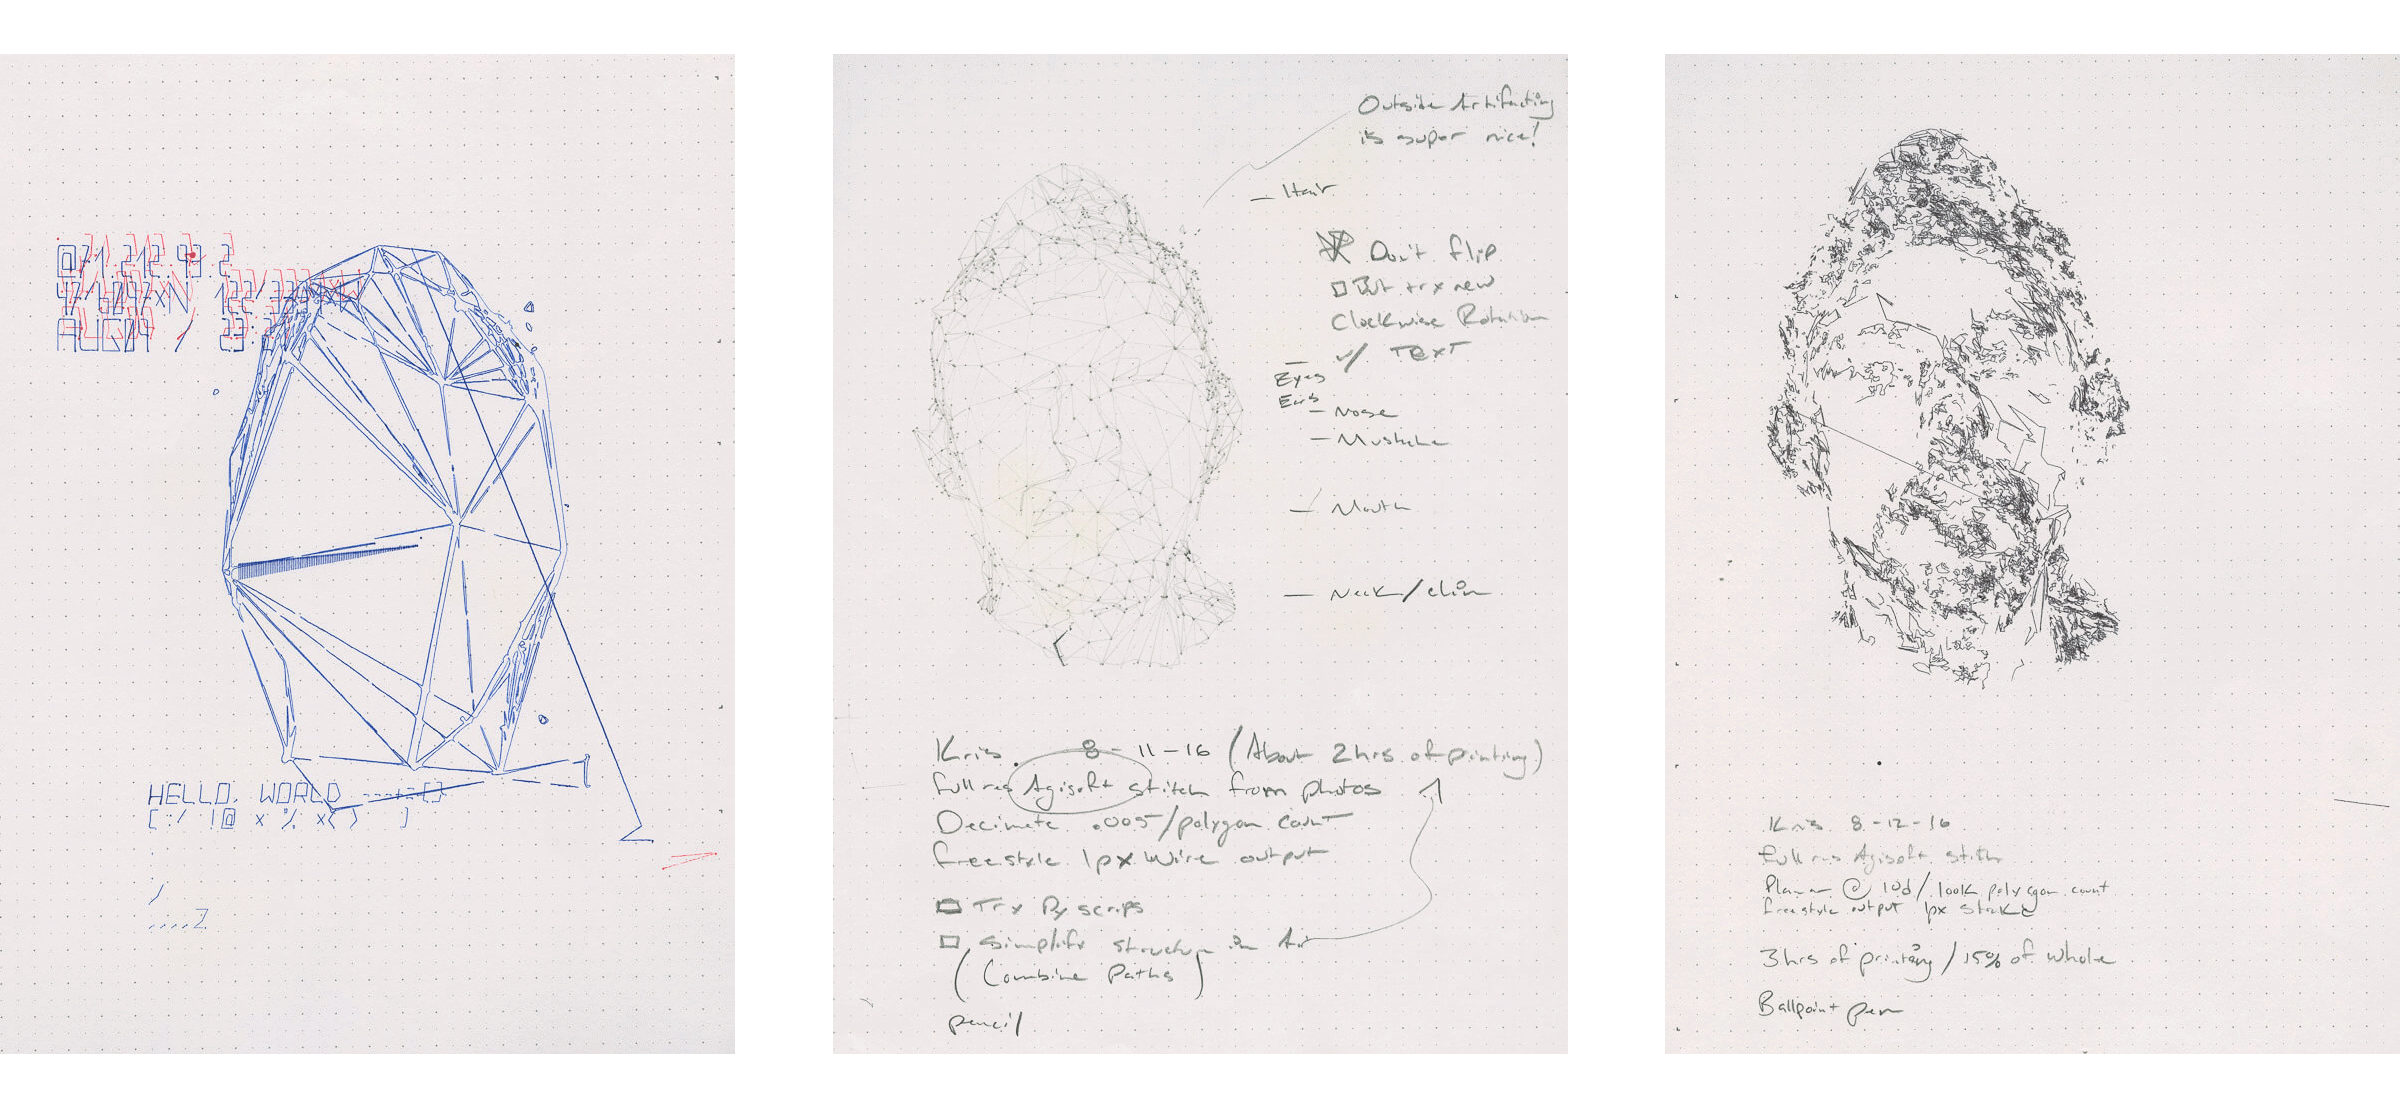 HELLO, WORLD ---+=[]
[ :/ !@ x % x( ) ]
Outside Artifacting
is super nice!
— Hair
Don't flip
But try new
Clockwise Rotation
w/ TEXT
Eyes
Ears
— Nose
— Mustache
— Mouth
— Neck/chin
Kris. 8-11-16 (About 2hrs of printing)
full res Agisoft stitch from photos
Decimate .005/polygon count
freestyle 1px wire output
Try Py scrips
Simplify structure in Ai
(Combine Paths)
pencil
Kris 8-12-16
full res Agisoft stitch
Planar @ 10d/100k polygon count
freestyle output 1px stroke
3hrs of printing/15% of whole
Ballpoint pen